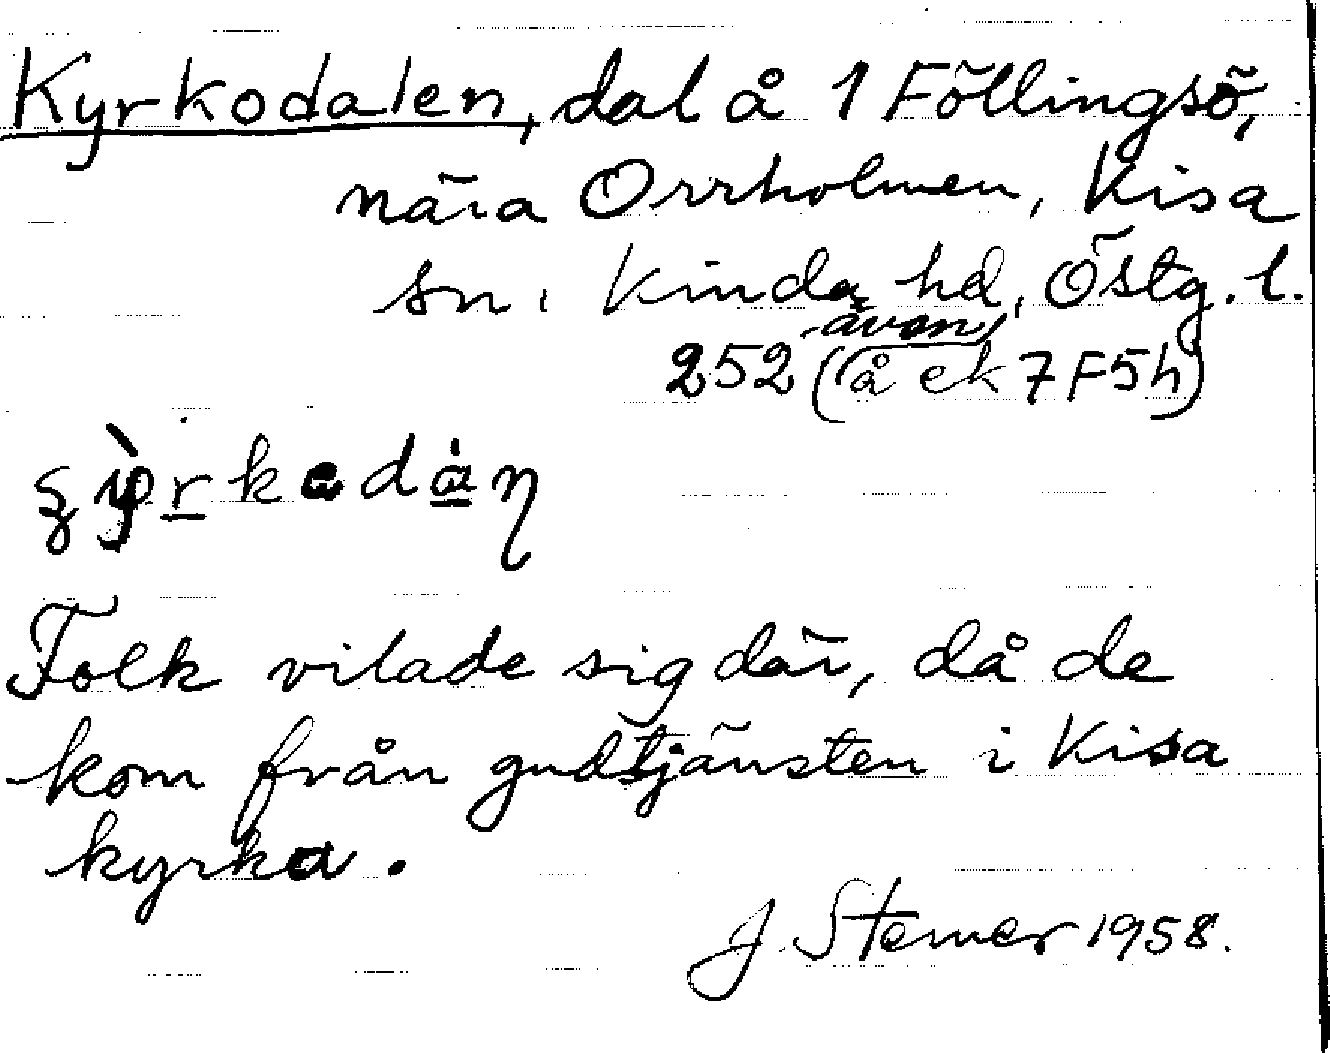 Kyrkodalen, dal å 1 Föllingsö,
nära Orrholmen, Kisa
sn. Kinda hd, Östg. l.
även
252 (å ek 7F5h)
Folk vilade sig där, då de
kom från gudstjänsten i Kisa
kyrka.
J. Sterner 1958.